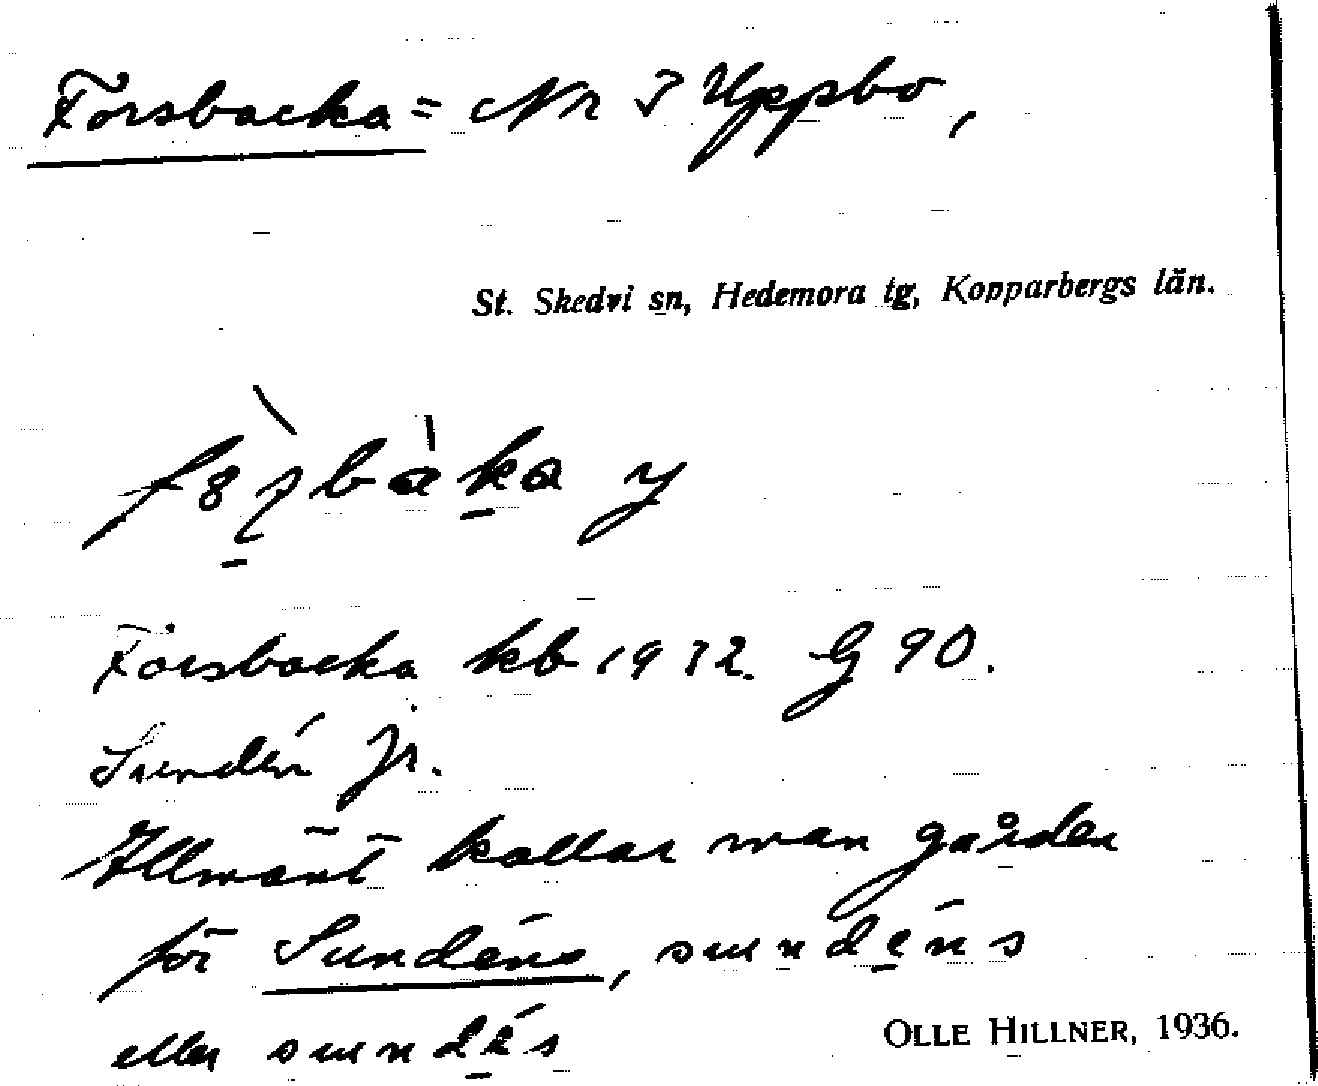 Forsbacka = Nr 3 Uppbo,
St. Skedvi sn, Hedemora tg, Kopparbergs län.
Forsbacka kb 1932. G 90.
Sundén Jr.
Allmänt kallar man gården
för Sundéns, sundéns
eller sundés
OLLE HILLNER, 1936.